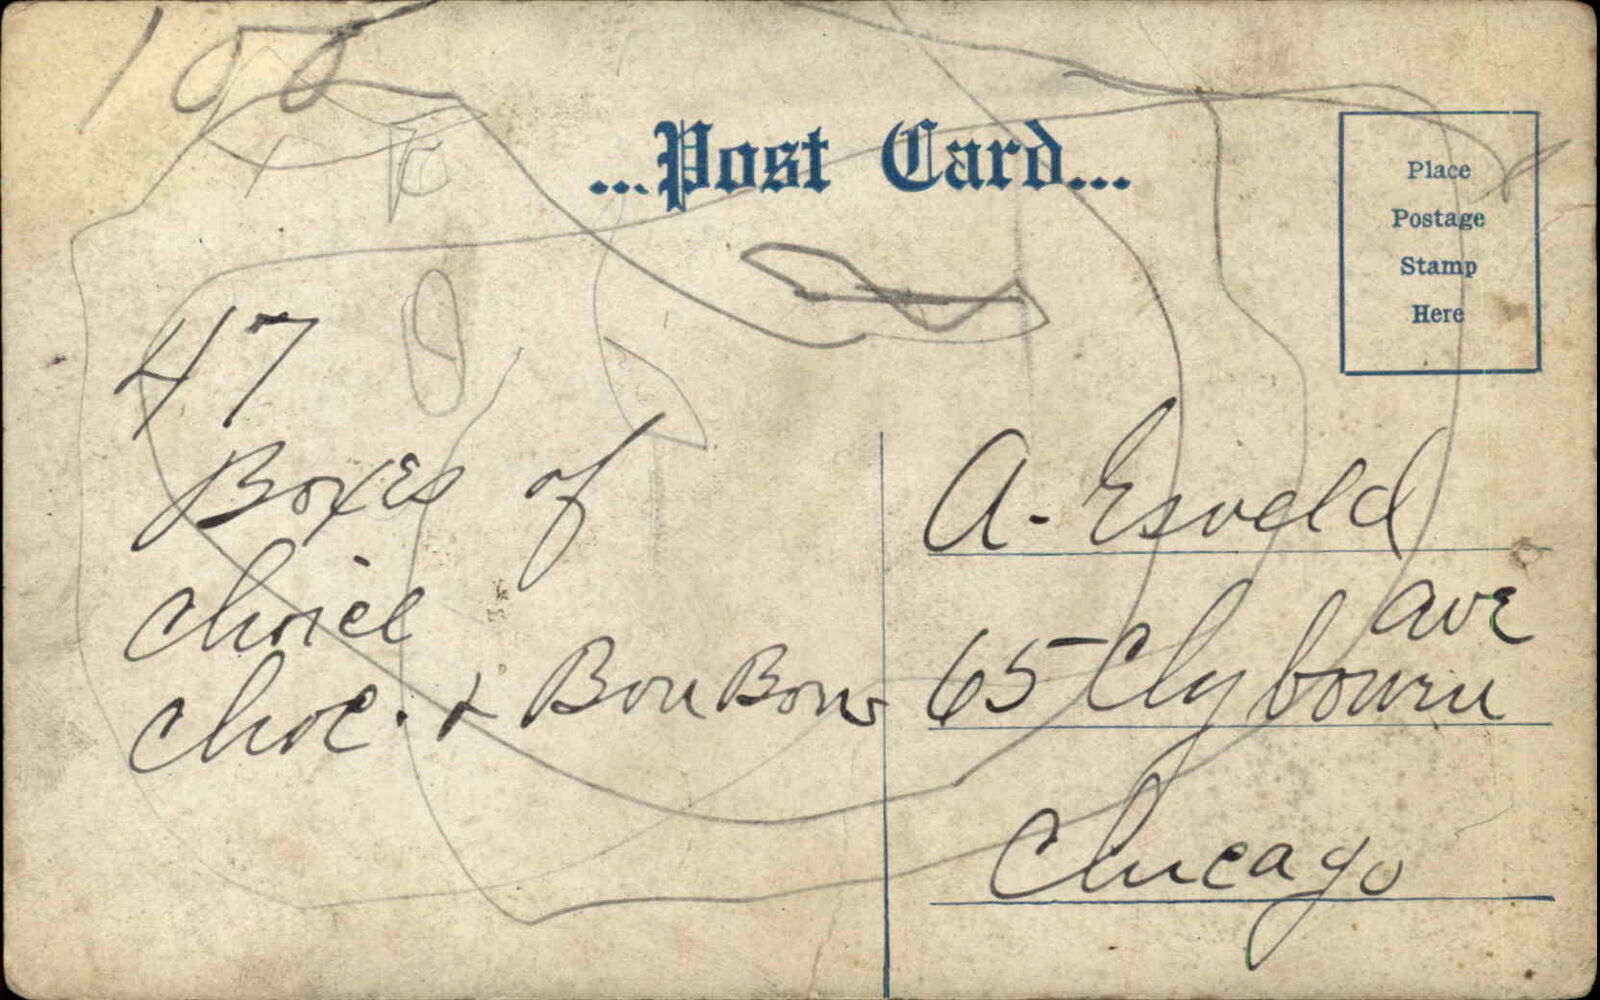 100
...Post Card...
Place
Postage
Stamp
Here
47
Boxes of
choice
choc. & Bon Bons
A. Esveld
65 Clybourn Ave
Chicago